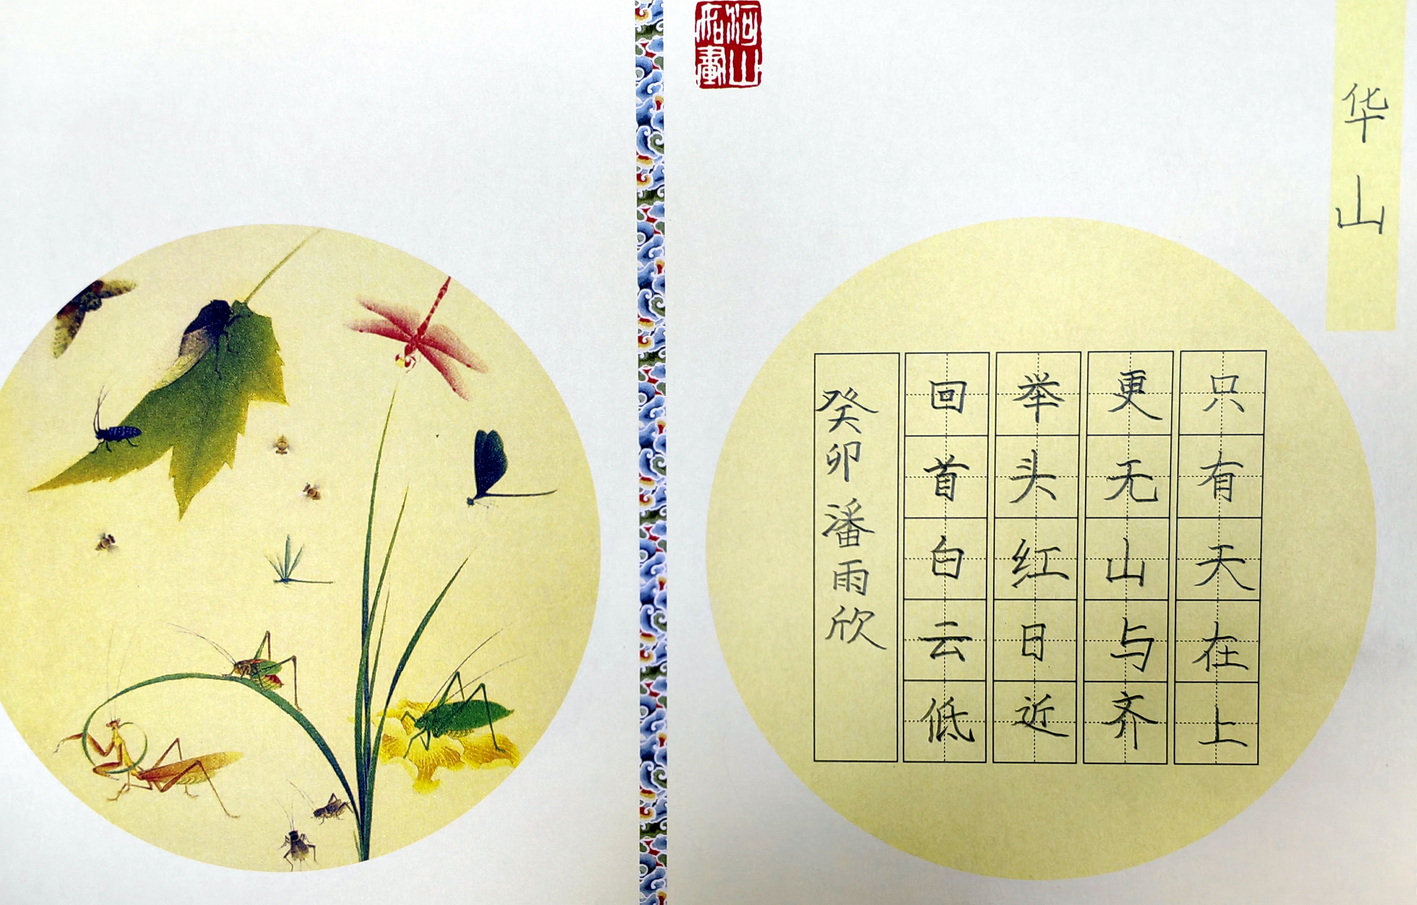 华山
只有天在上
更无山与齐
举头红日近
回首白云低
癸卯潘雨欣
河山如画